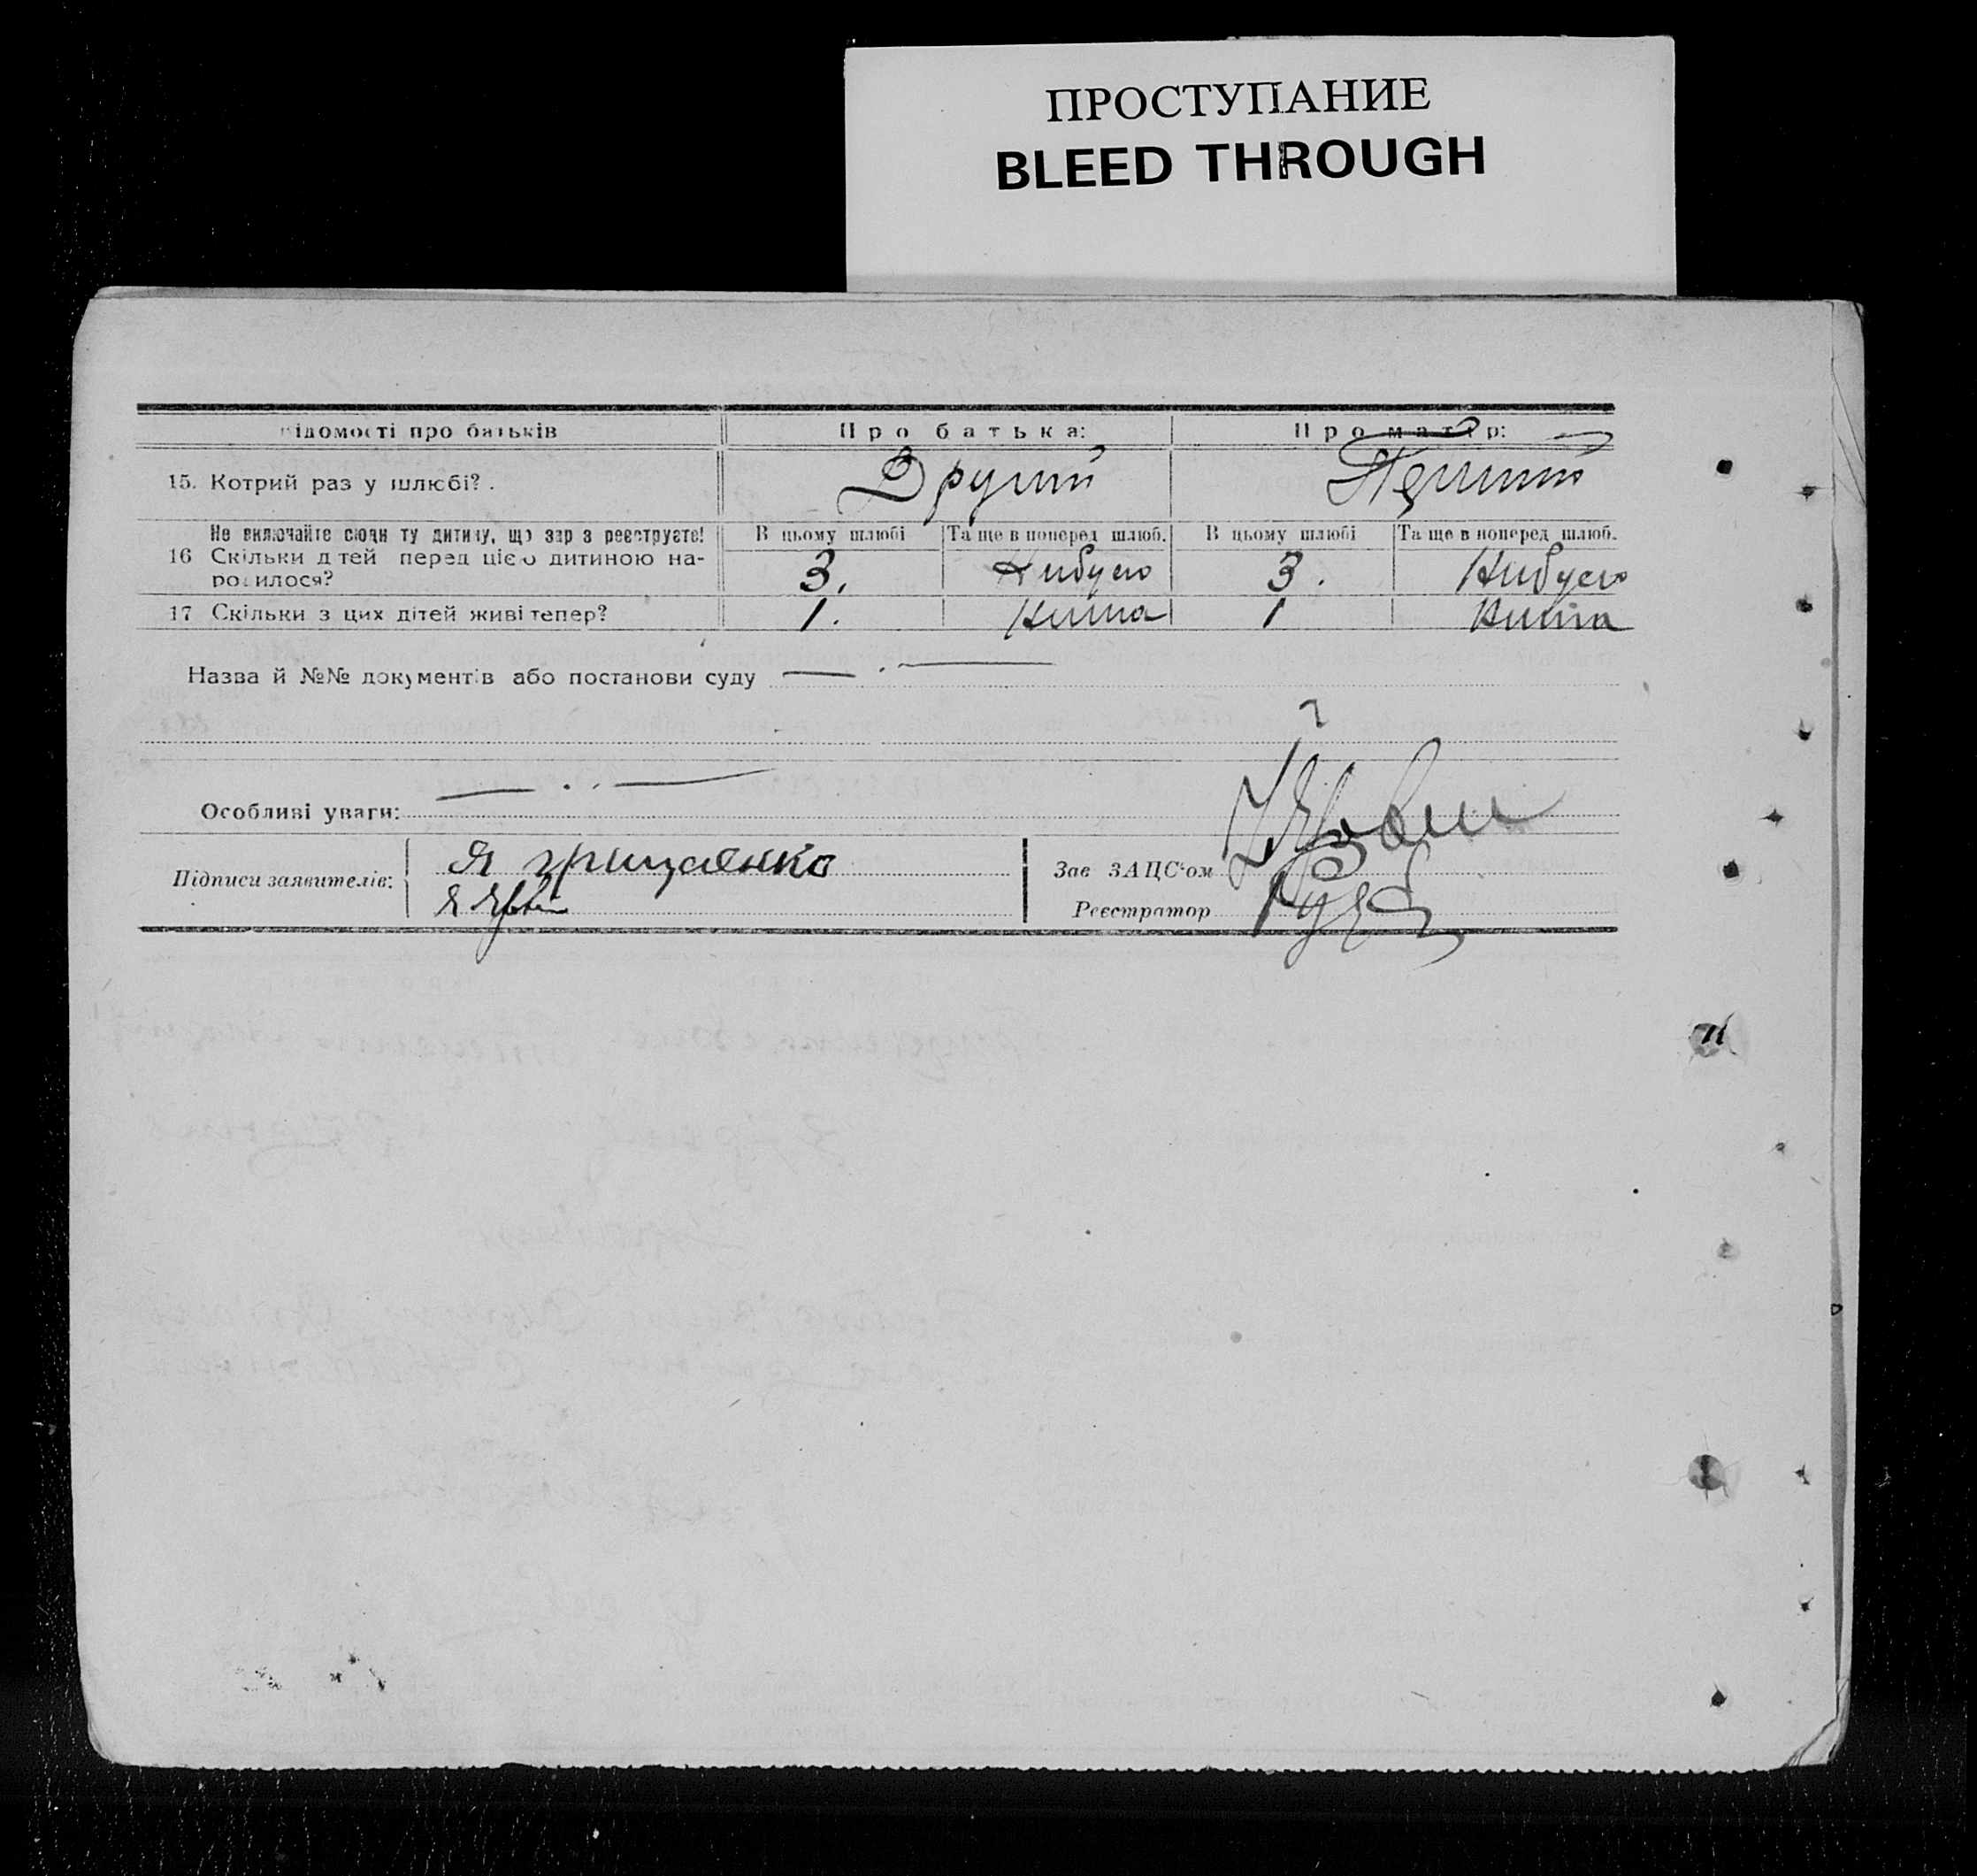 ПРОСТУПАНИЕ
BLEED THROUGH
ідомості про батьків
Про батька:
Про матір:
15. Котрий раз у шлюбі?.
Другий
Перший
Не включайте сюди ту дитину, що зар з реєструєте!
В цьому шлюбі
Та ще в поперед шлюб.
В цьому шлюбі
Та ще в поперед шлюб.
16 Скільки д тей перед цією дитиною на-
ро илося?
3.
Небуло
3.
Небуло
17 Скільки з цих дітей живі тепер?
1.
Нима
1
Нима
Назва й №№ документів або постанови суду
Особливі уваги:
Підписи заявителів:
Я грищенко
Я
Зав ЗАЦС‘ом
Реєстратор